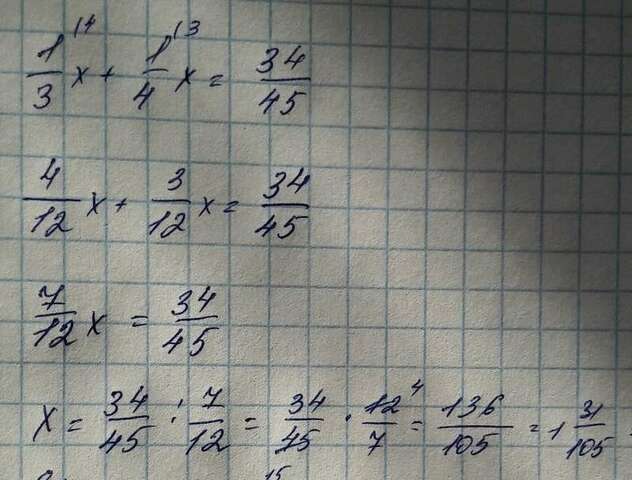 1/3 ⁽⁴ x + 1/4 ⁽³ x = 34/45
4/12 x + 3/12 x = 34/45
7/12 x = 34/45
x = 34/45 : 7/12 = 34/45 · 12⁴/7 = 136/105 = 1 31/105
15